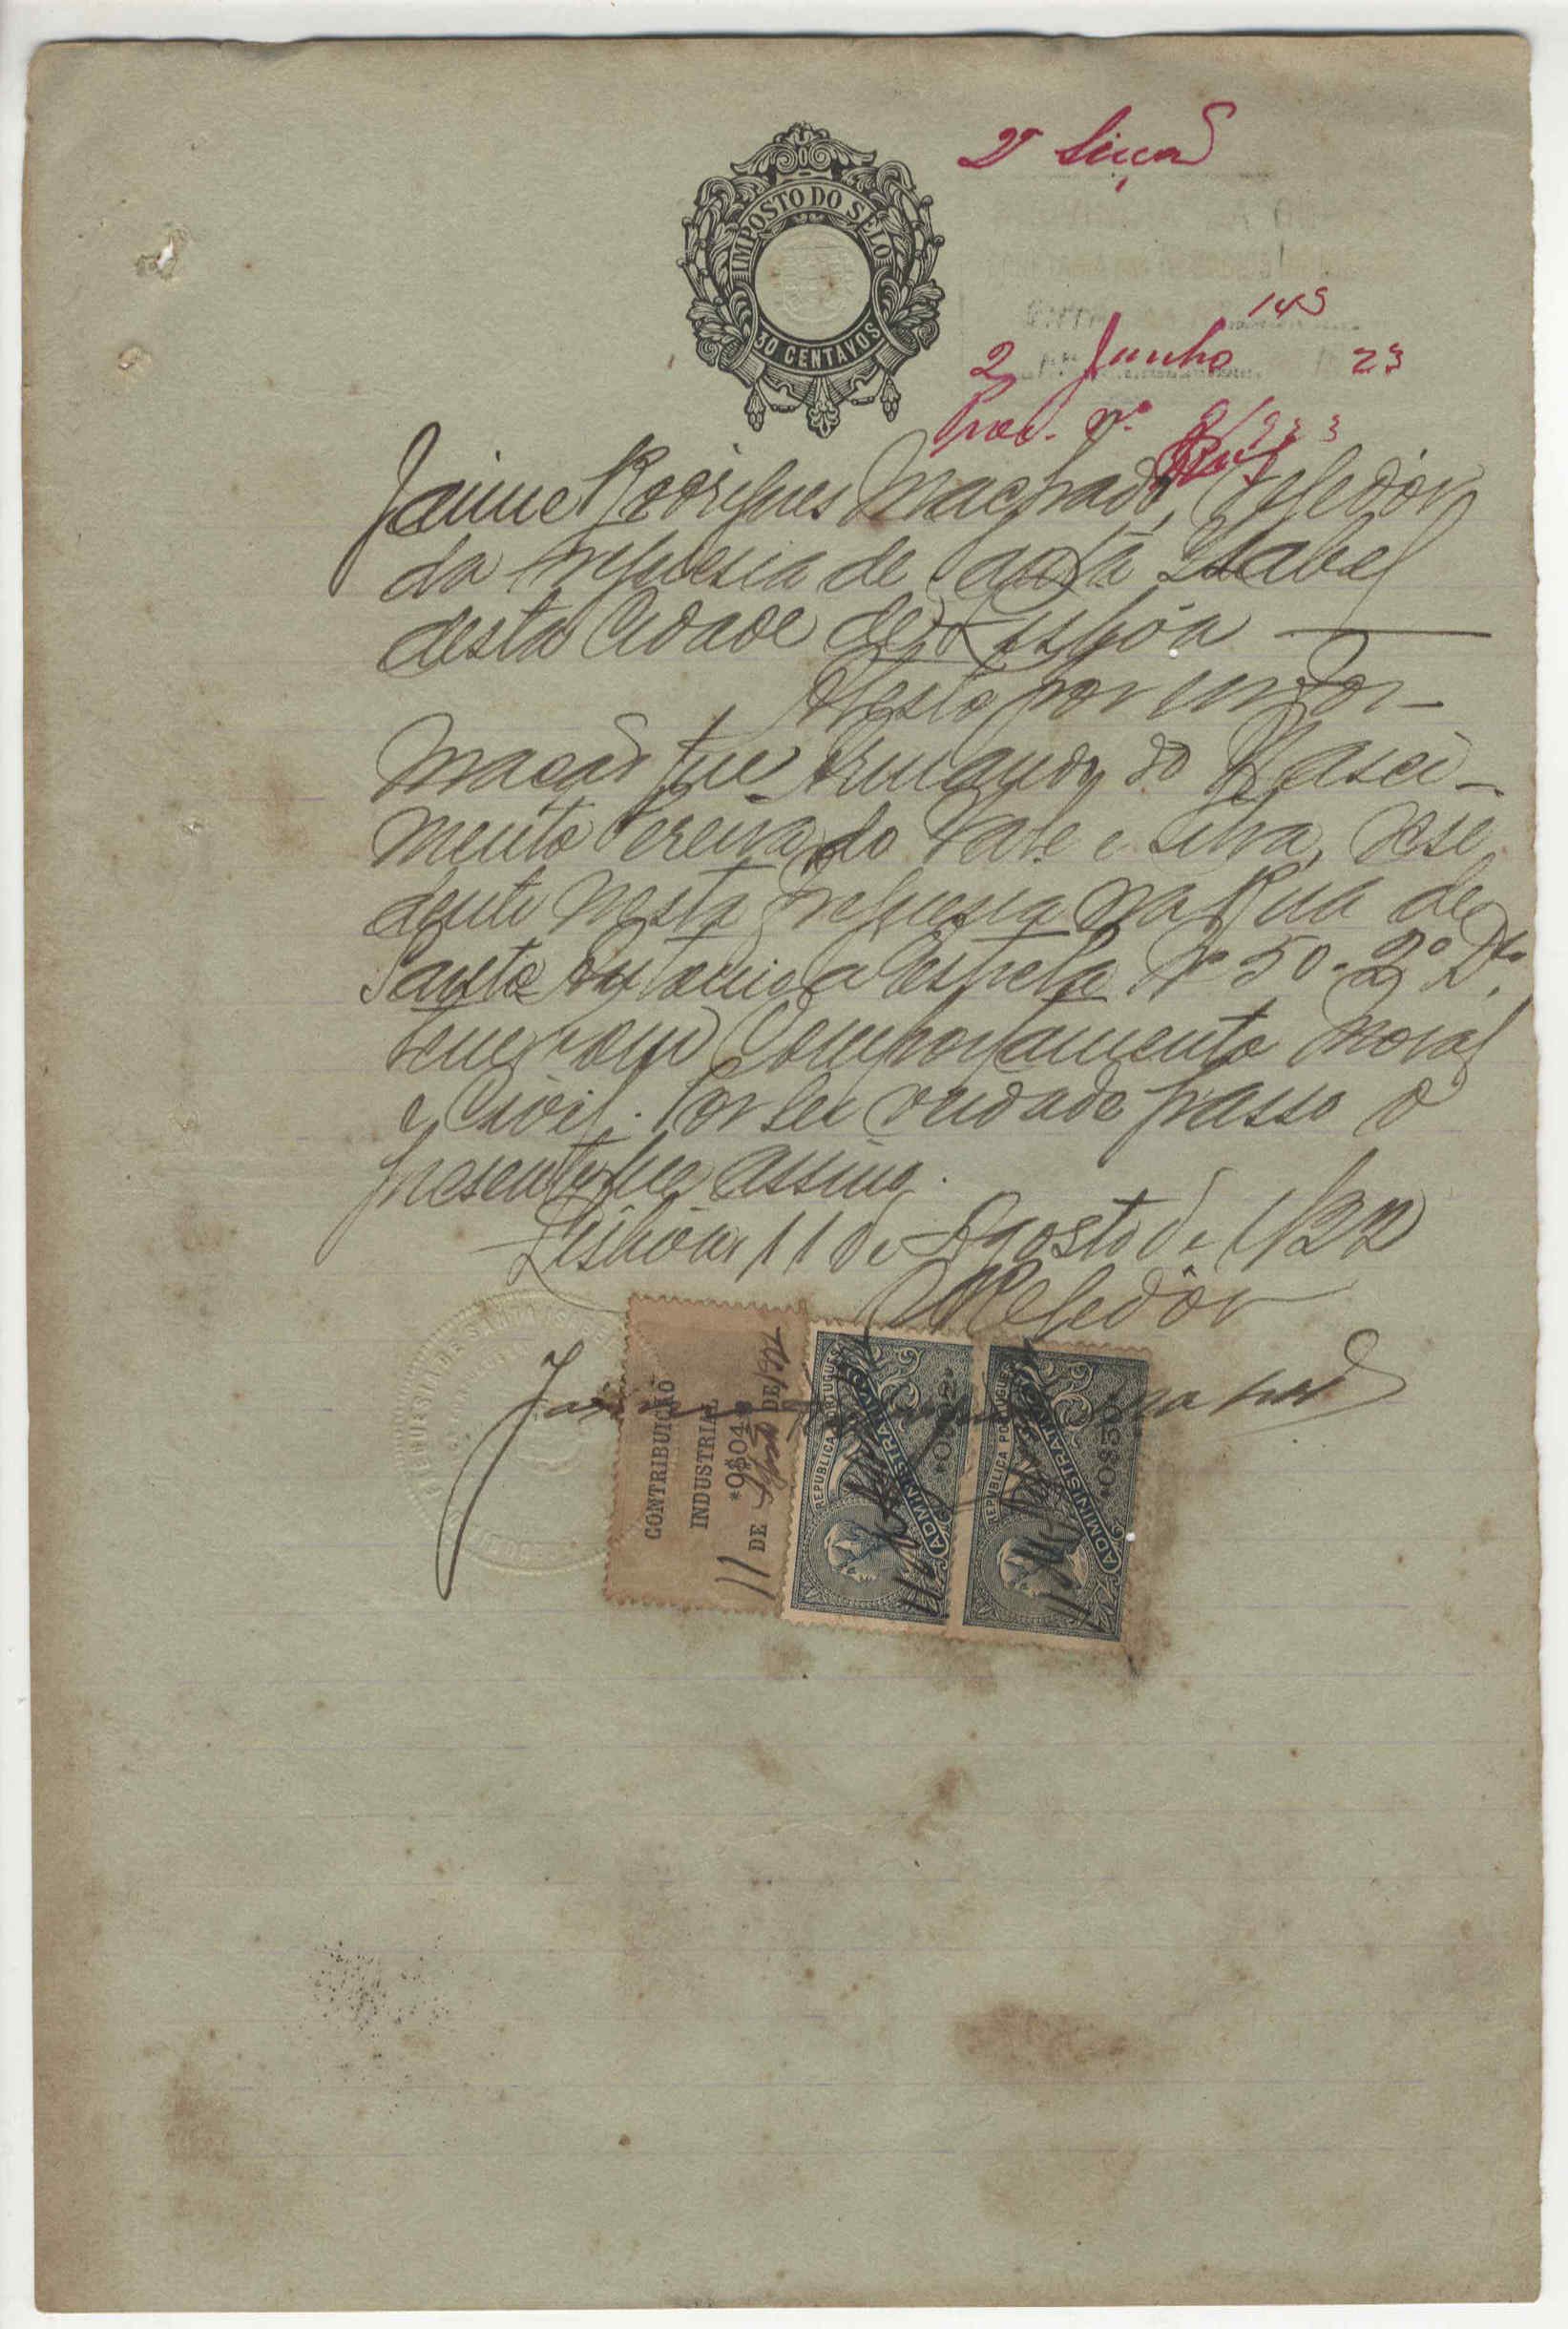 IMPOSTO DO SELO
30 CENTAVOS
2ª Secção
145
2 Junho 23
Proc. nº 8/923
Jaime Rodrigues Machado, Regedor
da Freguesia de Santa Isabel
desta Cidade de Lisbôa
Atesto por infor-
mação que Armando do Nasci-
mento Pereira do Vale e Silva, resi
dente nesta freguesia na Rua de
Santo Antonio á Estrela Nº 50-2º Dto.
tem bom Comportamento Moral
e Civil. Por ser verdade passo o
presente que assino.
Lisbôa 11 de Agosto de 1922
O Regedôr
Jaime Rodrigues Machado
CONTRIBUIÇÃO
INDUSTRIAL
*0$04*
11 DE Agosto DE 1922
REPUBLICA PORTUGUESA
ADMINISTRATIVO
REPUBLICA PORTUGUESA
ADMINISTRATIVO
*0$50*
FREGUESIA DE SANTA ISABEL